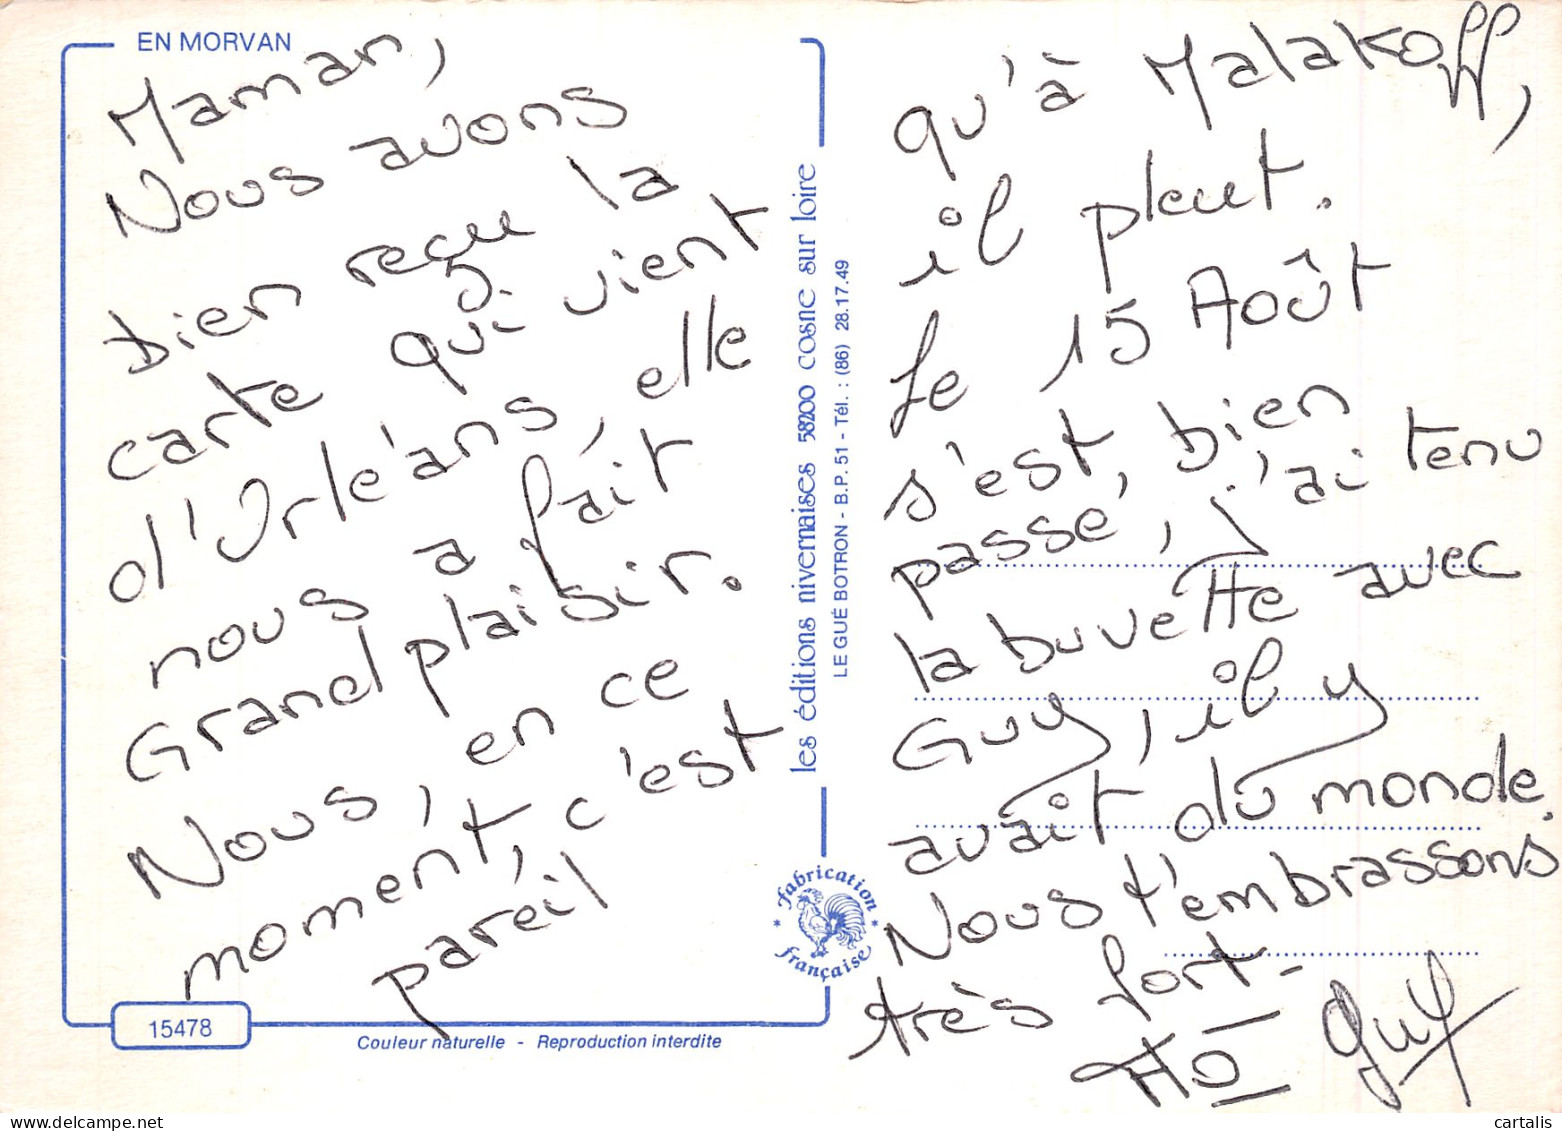 EN MORVAN
Maman,
Nous avons
bien reçu la
carte qui vient
d'Orléans, elle
nous a fait
Grand plaisir.
Nous, en ce
moment, c'est
pareil
15478
Couleur naturelle - Reproduction interdite
les éditions nivernaises 58200 cosne sur loire
LE GUÉ BOTRON - B.P. 51 - Tél. : (86) 28.17.49
fabrication
française
qu'à Malakoff,
il pleut.
Le 15 Août
s'est, bien
passé, j'ai tenu
la buvette avec
Guy, il y
avait du monde.
Nous t'embrassons
très fort -
Guy
cartalis